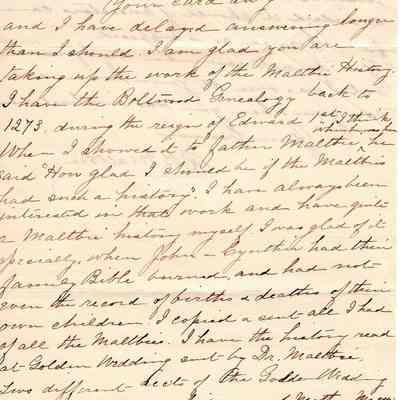 Your card
and I have delayed answering longer
than I should. I am glad you are
taking up the work of the Maltbie History.
I have the Boltwood Genealogy back to
1273, during the reign of Edward 1st, I think
When I showed it to father Maltbie, he
said "How glad I should be if the Maltbies
had such a history." I have always been
interested in that work and have quite
a Maltbie history myself. I was glad of it
specially, when John & Cynthia had their
family Bible burned, and had not
even the record of births & deaths of their
own children, I copied & sent all I had
of all the Maltbies. I have the history read
at Golden Wedding sent by Dr. Maltbie,
Two different accts of the Golden Wedding